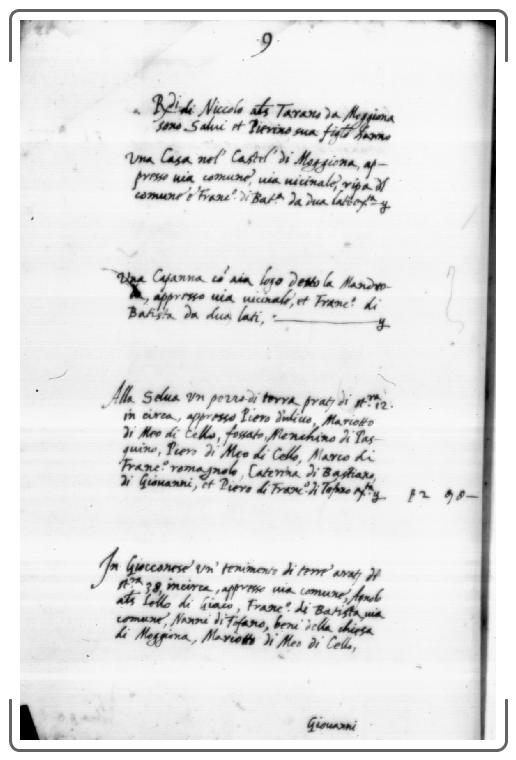 9
Rdi di Niccolo als Tarano da Moggiona
sono Salvi et Pierino sua figli hanno
Una Casa nel Castel di Moggiona, ap-
presso via comune, via vicinale, ripa del
comune e Franc.º di Bat.ª da dua lati
Una Capanna cō aia logo detto la Mandro-
, appresso via vicinale, et Franc.º di
Batista da dua lati,
Alla Selva un pezzo di terra prat.ª di st.ra 12.
in circa, appresso Piero d'ulivo, Mariotto
di Meo di Cello, fossato, Menchino di Pas-
quino, Piero di Meo di Cello, Marco di
Franc.º romagnolo, Caterina di Bastiano,
di Giovanni, et Piero di Franc.º di Tofano
In Giocconese un tenimento di terre arat.e di
st.ra 38 incirca, appresso via comune, Agnolo
als Lollo di Giaco, Franc.º di Batista, via
comune, Nanni di Tofano, beni della chiesa
di Moggiona, Mariotto di Meo di Cello,
Giovanni